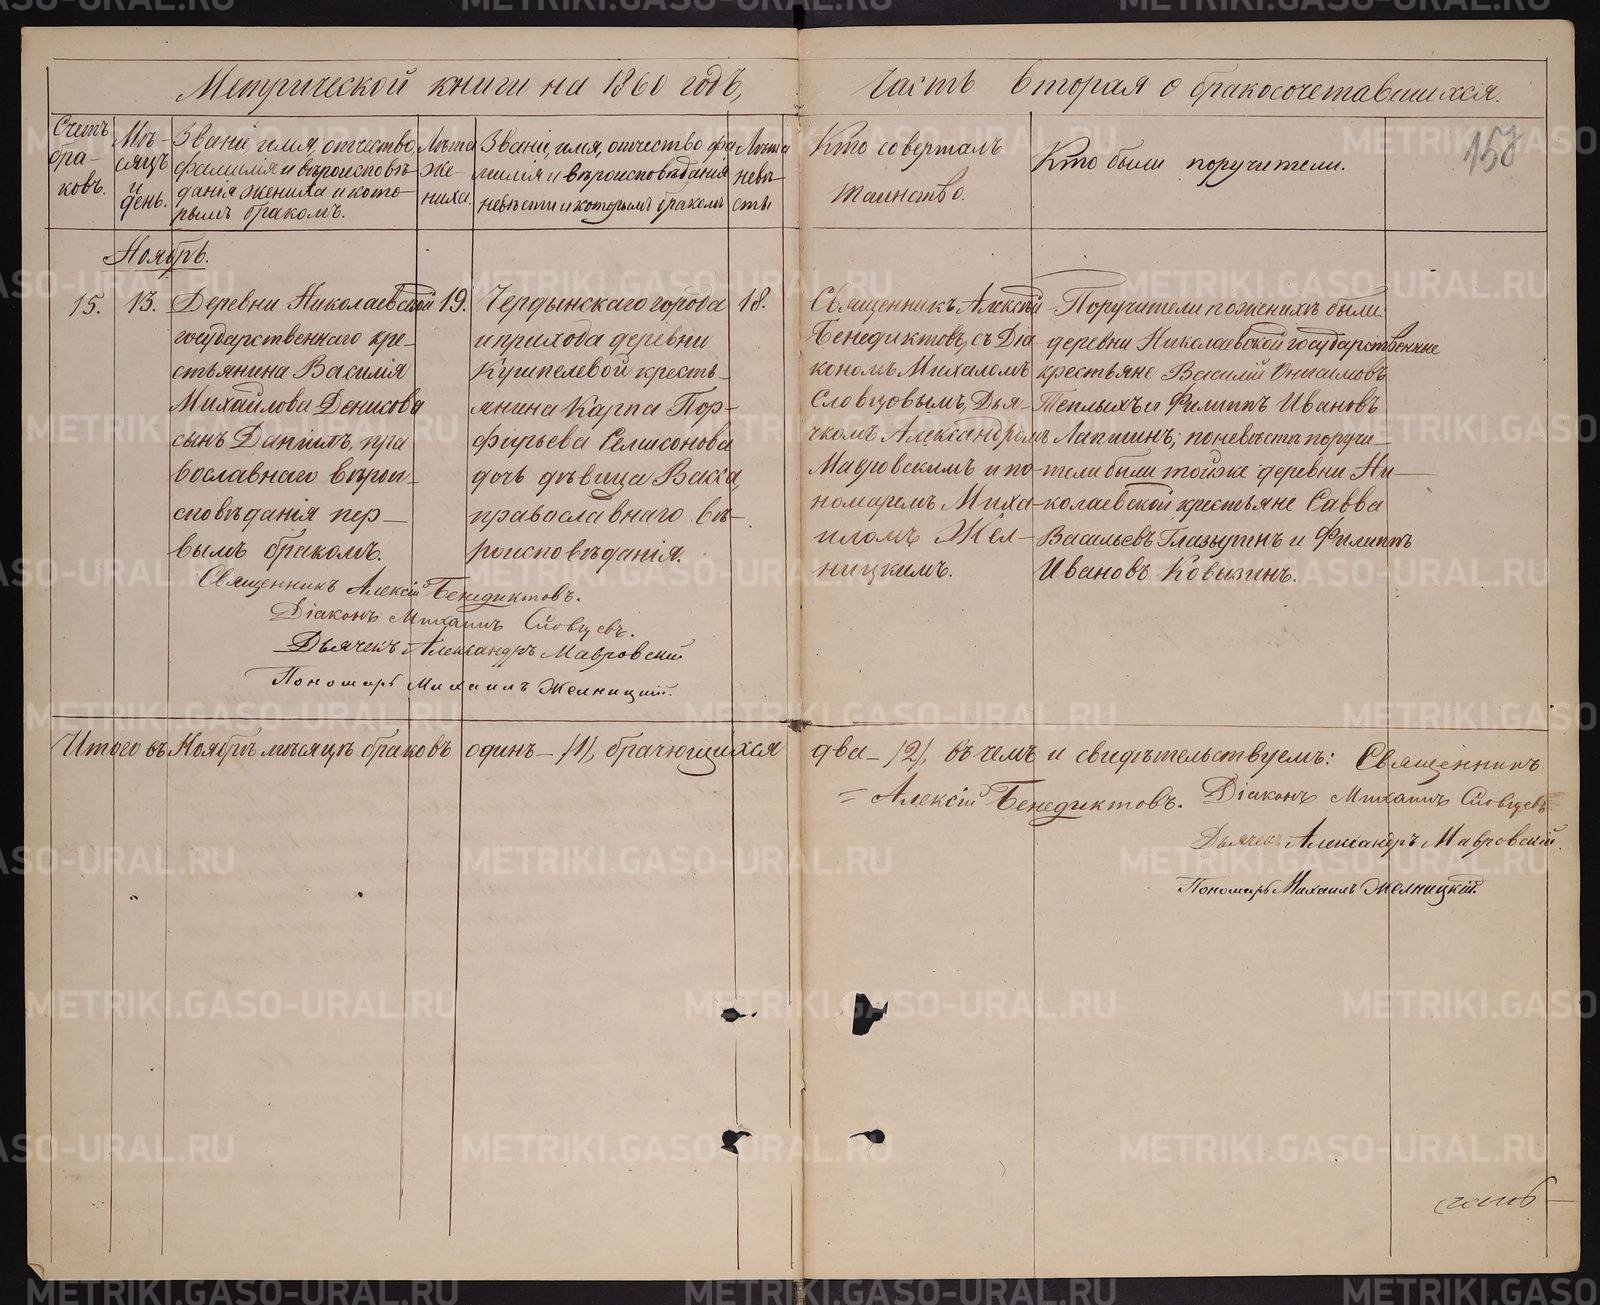 Метрической книги на 1860 годъ,
Часть вторая о бракосочетавшихся.
Счетъ
бра-
ковъ.
Мѣ-
сяцъ
и
день.
Званіе, имя, отчество,
фамилія и вѣроисповѣ
данія жениха и кото-
рымъ бракомъ.
Лѣта
же-
ниха.
Званіе, имя, отчество фа
милія и вѣроисповѣданія
невѣсты и которымъ бракомъ
Лѣта
невѣ
сты
Кто совершалъ
Таинство.
Кто были поручители.
Ноябрь.
15.
13.
Деревни Николаевской
государственнаго кре-
стьянина Василія
Михайлова Денисова
сынъ Даніилъ, пра
вославнаго вѣрои-
сповѣданія пер-
вымъ бракомъ.
19.
Чердынскаго города
и прихода деревни
Кушпелевой кресть-
янина Карпа Пор-
фирьева Селисонова
дочь дѣвица Васса,
православнаго вѣ-
роисповѣданія.
18.
Священникъ Алексій
Бенедиктовъ, съ Діа
кономъ Михаломъ
Словцовымъ, Дья-
чкомъ Александромъ
Мавровскимъ и по-
номаремъ Миха-
иломъ Жел-
ницкимъ.
Поручители по женихѣ были:
деревни Николаевской государственные
крестьяне Василій Онисимовъ
Теплыхъ и Филиппъ Ивановъ
Лапшинъ; по невѣстѣ поручи-
тели были тойже деревни Ни-
колаевской крестьяне Савва
Васильевъ Глазыринъ и Филиппъ
Ивановъ Ковызинъ.
Священникъ Алексій Бенедиктовъ.
Діаконъ Михаилъ Словцевъ.
Дьячекъ Александръ Мавровскій
Пономарь Михаилъ Желницкій.
Итого въ Ноябрѣ мѣсяцѣ браковъ одинъ - /1/, брачующихся
два - /2/, въ чемъ и свидѣтельствуемъ: Священникъ
= Алексій Бенедиктовъ. Діаконъ Михаилъ Словцевъ
Дьячекъ Александръ Мавровскій.
Пономарь Михаилъ Желницкій.
METRIKI.GASO-URAL.RU